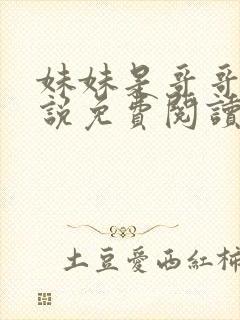 妹妹是哥哥
說免費閱讀
土豆愛西紅柿